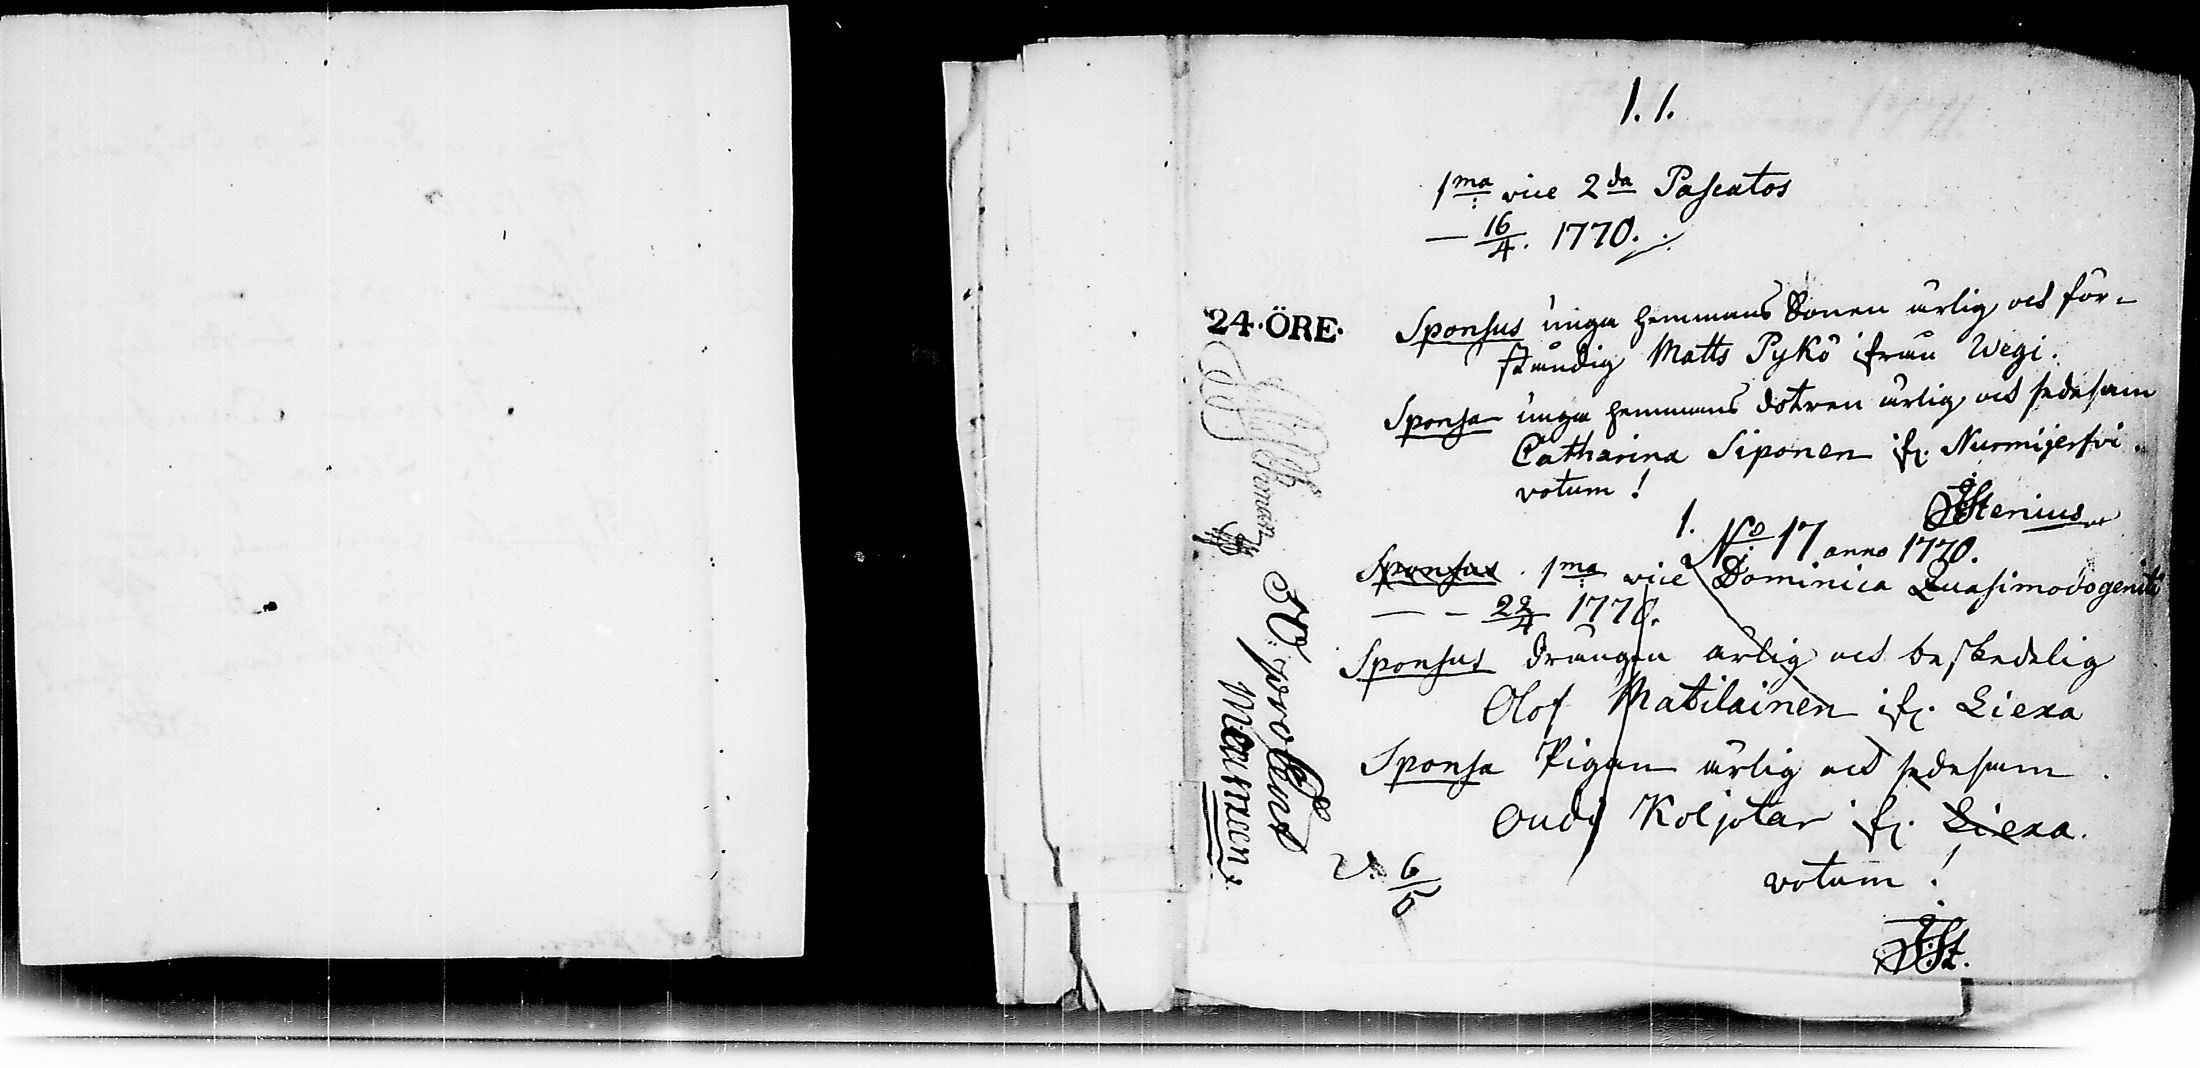 1. 1.
1ma vice 2da Paschatos
— 16/4. 1770.
24·ÖRE·
Sponsus unga hemmans Sonen ärlig och för-
ståndig Matts Pykö ifrån Wegi.
Sponsa unga hemmans dotren ärlig och sedesam
Catharina Siponen ifr. Nurmijerfvi.
votum!
JStenius
1. No 17 anno 1770.
Sponsus. 1ma vice Dominica Quasimodogeniti
— — 22/4 1770.
Sponsus drängen ärlig och beskedelig
Olof Matilainen ifr. Liexa
Sponsa Pigan ärlig och sedesam
Koljotar ifr. Liexa.
votum!
V. 6/5
J:St.